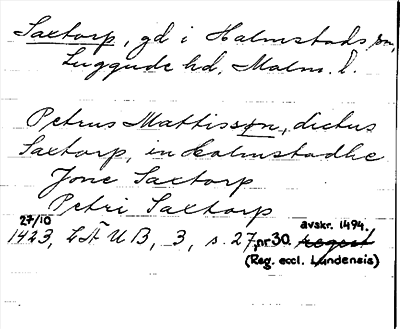 Saxtorp, gd i Halmstads sn,
Luggude hd, Malm. l.
Petrus Mattisson, dictus
Saxtorp, in Halmstadhe
Jone Saxtorp
Petri Saxtorp
27/10
avskr. 1494.
1423, LÄUB, 3, s. 27, nr 30. regest
(Reg. eccl. Lundensis)